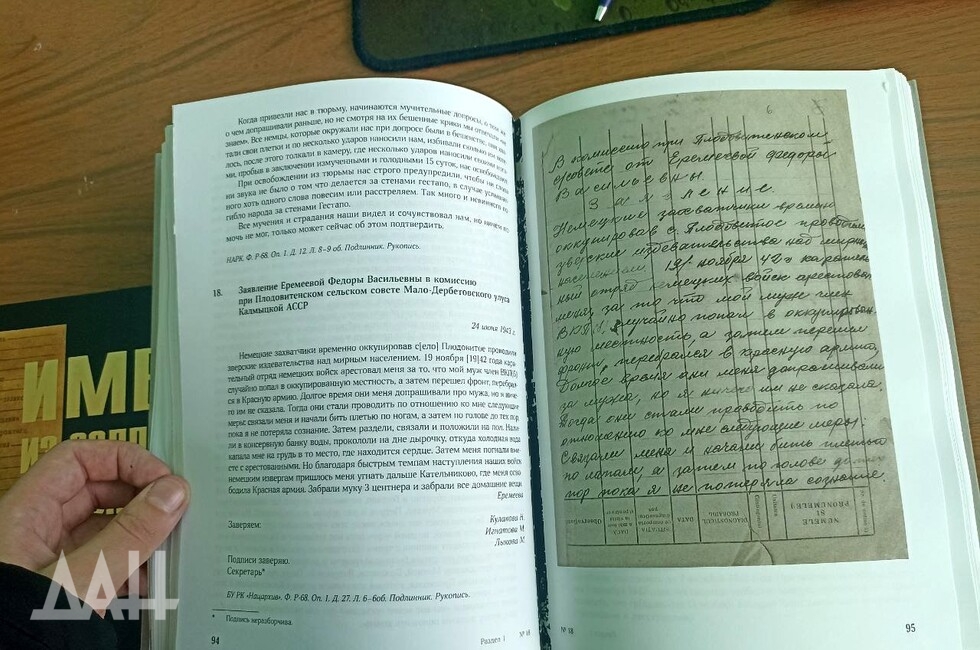 Когда привезли нас в тюрьму, начинаются мучительные допросы, о том же
о чем допрашивали раньше, но не смотря на их бешенные крики мы отвечали
знаем». Все немцы, которые окружали нас при допросе были в бешенстве,
тали свои плетки и по несколько ударов наносили нам, избивали сколько им
лось, после этого толкали в камеру, где несколько ударов наносили
ми, пробыв в заключении измученными и голодными 15 суток, нас
При освобождении из тюрьмы нас строго предупредили, чтобы не
ни звука не было о том что делается за стенами гестапо, в случае
ного хоть одного слова повесим или расстреляем. Так много и невинного
гибло народа за стенами Гестапо.
Все мучения и страдания наши видел и сочувствовал нам, но
мочь не мог, только может сейчас об этом подтвердить.
НАРК. Ф. Р-68. Оп. 1. Д. 12. Л. 8–9 об. Подлинник. Рукопись.
18. Заявление Еремеевой Федоры Васильевны в комиссию
при Плодовитенском сельском совете Мало-Дербетовского улуса
Калмыцкой АССР
24 июня 1943 г.
Немецкие захватчики временно оккупировав с[ело] Плодовитое проводили
зверские издевательства над мирным населением. 19 ноября [19]42 года кара-
тельный отряд немецких войск арестовал меня за то, что мой муж член ВКП(б)
случайно попал в оккупированную местность, а затем перешел фронт, перебрал-
ся в Красную армию. Долгое время они меня допрашивали про мужа, но я ниче-
го им не сказала. Тогда они стали проводить по отношению ко мне следующие
меры: связали меня и начали бить плетью по ногам, а затем по голове до тех пор,
пока я не потеряла сознание. Затем раздели, связали и положили на пол. Нали-
ли в консервную банку воды, прокололи на дне дырочку, откуда холодная вода
капала мне на грудь в то место, где находится сердце. Затем меня погнали вме-
сте с арестованными. Но благодаря быстрым темпам наступления наших войск
немецким извергам пришлось меня угнать дальше Кательниково, где меня осво-
бодила Красная армия. Забрали муку 3 центнера и забрали все домашние вещи
Еремеева
Заверяем:
Куланова Н.
Игнатова М.
Лыкова М.
Подписи заверяю.
Секретарь*
БУ РК «Нацархив». Ф. Р-68. Оп. 1. Д. 27. Л. 6–6об. Подлинник. Рукопись.
* Подпись неразборчива.
94
Раздел I
6
В комиссию при Плодовитенском
с/совете от Еремеевой Федоры
Васильевны.
Заявление.
Немецкие захватчики времен
оккупировав с. Плодовитое проводили
зверские издевательства над мирным
населением 19/ ноября 42 г каратель
ный отряд немецких войск арестовал
меня, за то что мой муж член
ВКП/б/, случайно попал в оккупирован
ную местность, а затем перешел
фронт, перебрался в красную армию
Долгое время они меня допрашивали
за мужа, но я ничего им не сказала.
Тогда они стали проводить по
отношению ко мне следующие меры:
Связали меня и начали бить плетью
по ногам, а затем по голове до тех
пор пока я не потеряла сознание.
NUMELE
ȘI
PRONUMELE
DIAGNOSTICUL
PROBABIL
DATA
№ 18
95
ИМЕ
ДАН